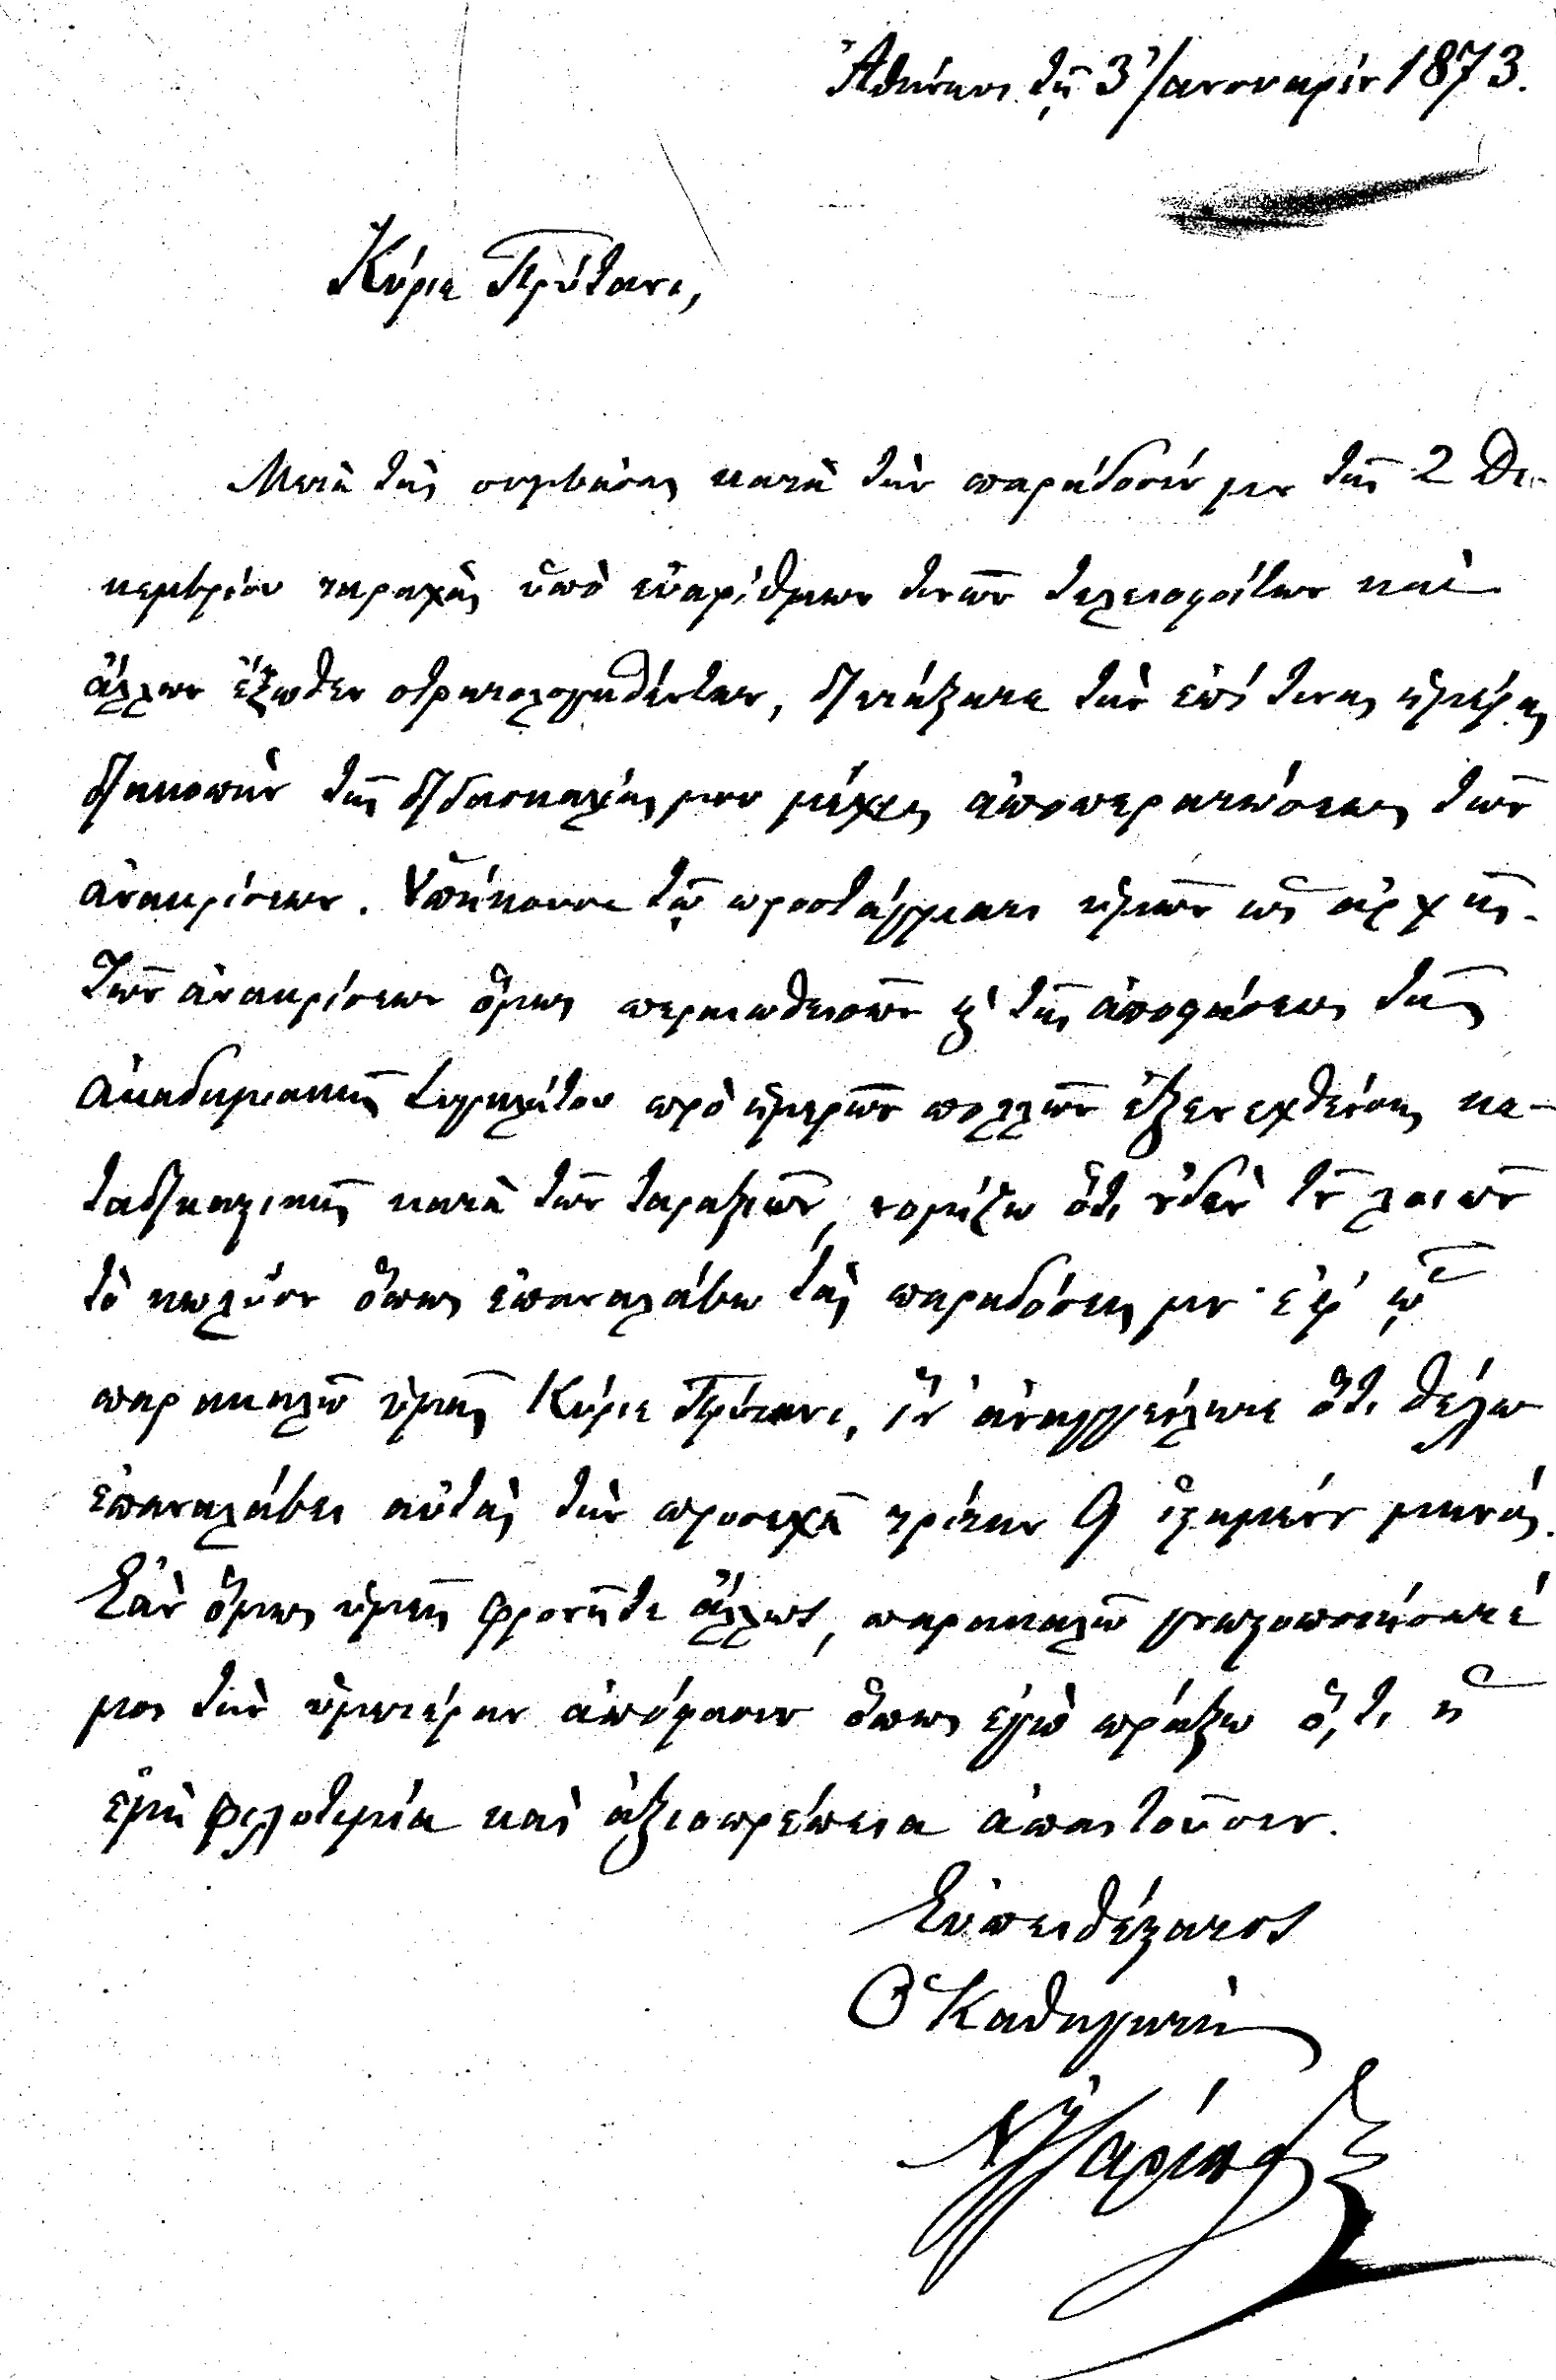 Ἀθήνησι τῇ 3 Ἰανουαρίου 1873.
Κύριε Πρύτανι,
Μετὰ τὰς συμβάσας κατὰ τὴν παράδοσίν μου τῆς 2 Δε-
κεμβρίου ταραχὰς ὑπὸ εὐαρίθμων τινῶν τελειοφοίτων καὶ
ἄλλων ἔξωθεν στρατολογηθέντων, διετάξατε τὴν ἐπί τινας ἡμέρας
διακοπὴν τῆς διδασκαλίας μου μέχρις ἀποπερατώσεως τῶν
ἀνακρίσεων. Ὑπήκουσα τῷ προστάγματι ὑμῶν ὡς ἀρχῆς.
Τῶν ἀνακρίσεων ὅμως περαιωθεισῶν καὶ τῆς ἀποφάσεως τῆς
Ἀκαδημαϊκῆς Συγκλήτου πρὸ ἡμερῶν πολλῶν ἐξενεχθείσης κα-
ταδικαστικῆς κατὰ τῶν ταραξιῶν, νομίζω ὅτι οὐδὲν τὸ λοιπὸν
τὸ κωλῦον ὅπως ἐπαναλάβω τὰς παραδόσεις μου· ἐφ' ᾧ
παρακαλῶ ὑμᾶς Κύριε Πρύτανι, ἵν' ἀναγγείλητε ὅτι θέλω
ἐπαναλάβει αὐτὰς τὴν προσεχῆ τρίτην 9 ἱσταμένου μηνός.
Ἐὰν ὅμως ὑμεῖς φρονῆτε ἄλλως, παρακαλῶ γνωστοποιήσατέ
μοι τὴν ὑμετέραν ἀπόφασιν ὅπως ἐγὼ πράξω ὅ,τι ἡ
ἐμὴ φιλοτιμία καὶ ἀξιοπρέπεια ἀπαιτοῦσιν.
Εὐπειθέστατος
Ὁ Καθηγητὴς
Ν. Ι. Σαρίπολος